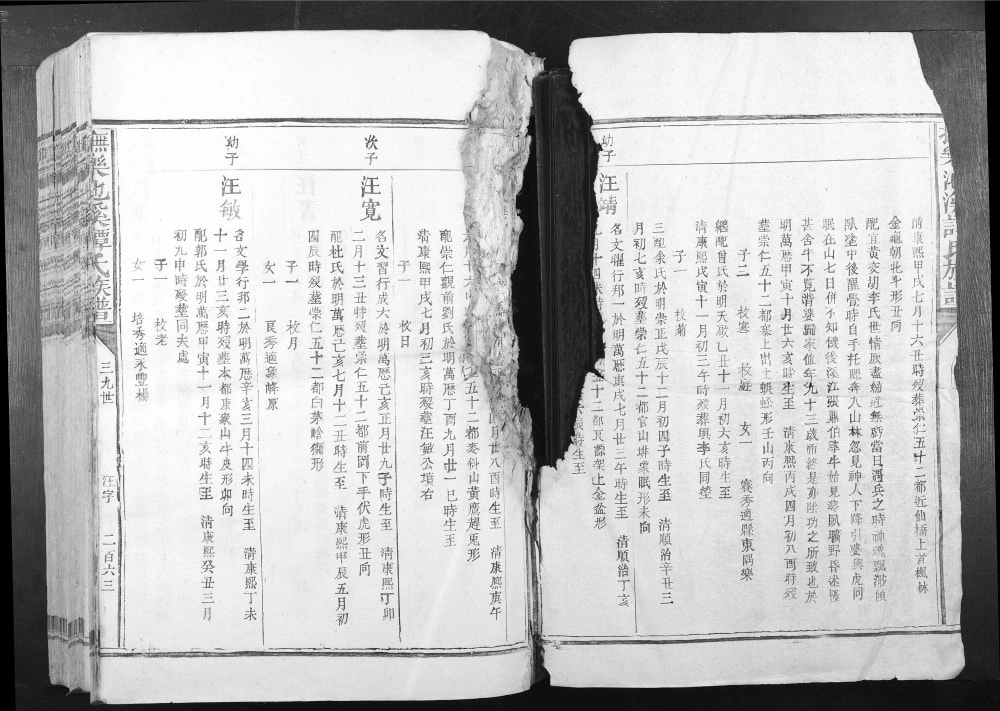 清康熙甲戌七月十六丑時歿葬崇仁五十二都近仙橋上首楓林
金龜朝北斗形丑向
配宜黃交胡李氏世情歷盡婦道無虧當日遇兵之時神魂飄渺傾
臥塗中後醒覺時自手托腮奔入山林忽見神人下降引婆與虎同
眠在山七日併不知餓後深江張鼎伯尋牛始見婆臥曠野昏迷極
甚舍牛不覓背婆歸家值年九十三歲而終是亦陰功之所致也於
明萬曆甲寅十月廿六亥時生至 清康熙丙戌四月初八酉時歿
葬崇仁五十二都寨上出土蜈蚣形壬山丙向
子二 枝寒 枝延 女一 賽秀適縣東隅樂
繼配曾氏於明天啟乙丑十一月初六亥時生至
清康熙戊寅十一月初三午時歿葬與李氏同塋
子一 枝菊
三配余氏於明崇正戊辰十二月初四子時生至 清順治辛丑三
月初七亥時歿葬崇仁五十二都官山排栗眠形未向
幼子
汪靖
名文曜行邦一於明萬曆庚戌七月廿三午時生至 清順治丁亥
月十四未時
五十二都
架上金盆形
時生至
月廿八酉時生至 清康熙庚午
五十二都麥科山黃鷹趕兔形
配崇仁觀前劉氏於明萬曆丁酉九月廿一巳時生至
清康熙甲戌七月初三亥時歿葬汪敏公墳右
子一 枝日
次子
汪寬
名文習行成大於明萬曆己亥正月廿九子時生至 清康熙丁卯
二月十三丑時歿葬崇仁五十二都前岡下手伏虎形丑向
配杜氏於明萬曆己亥七月十二丑時生至 清康熙甲辰五月初
四辰時歿葬崇仁五十二都白茅嶺獅形
子一 枝月
女一 良秀適象峰原
幼子
汪敏
名文學行邦二於明萬曆辛亥三月十四未時生至 清康熙丁未
十一月廿三亥時歿葬本都東歇山牛皮形卯向
配郭氏於明萬曆甲寅十一月十二亥時生至 清康熙癸丑三月
初九申時歿葬同夫處
子一 枝老
女一 培秀適永豐楊
撫樂
溪譚氏族譜
三九世
汪字
二百六三